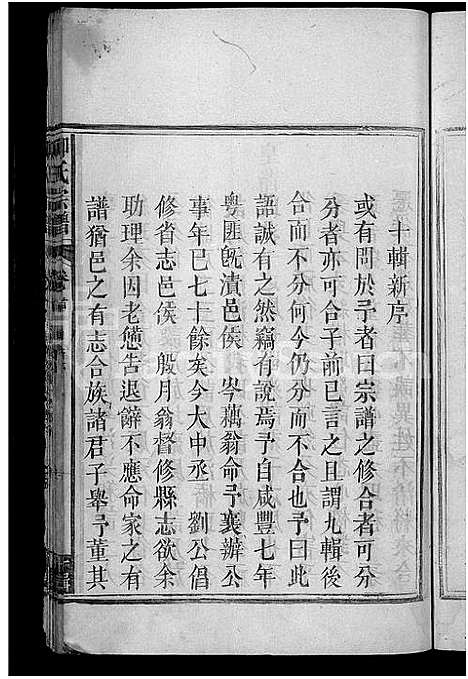 十輯新序
或有問於予者曰宗譜之修合者可分
分者亦可合子前已言之且謂九輯後
合而不分何今仍分而不合也予曰此
語誠有之然竊有說焉予自咸豐七年
粵匪既潰邑侯 岑藕翁命予襄辦公
事年已七十餘矣今大中丞 劉公倡
修省志邑侯 殷月翁督修縣志欲余
助理余因老憊告退辭不應命家之有
譜猶邑之有志合族諸君子舉予董其
氏宗譜 卷首